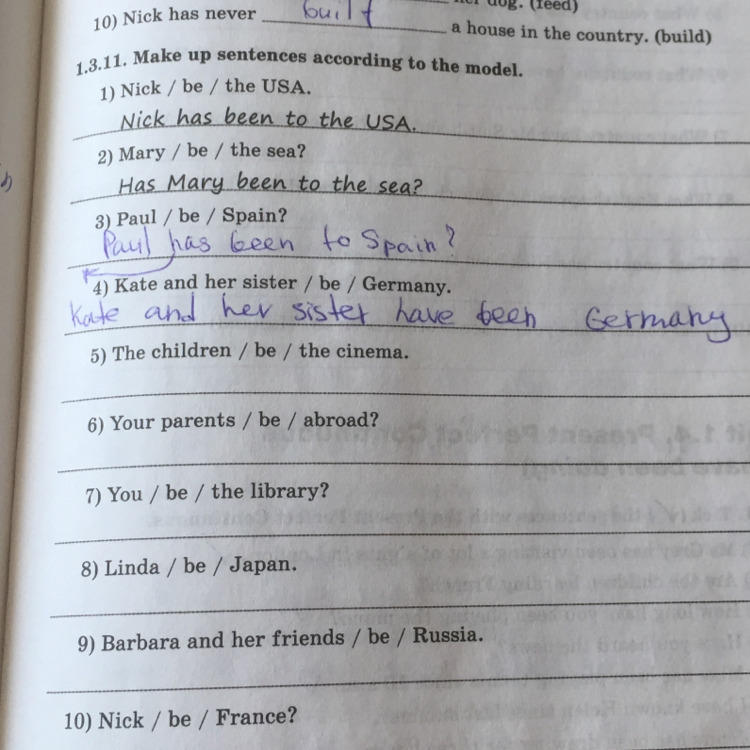 dog. (feed)
10) Nick has never built a house in the country. (build)
1.3.11. Make up sentences according to the model.
1) Nick / be / the USA.
Nick has been to the USA.
2) Mary / be / the sea?
Has Mary been to the sea?
3) Paul / be / Spain?
Paul has been to Spain?
4) Kate and her sister / be / Germany.
Kate and her sister have been Germany
5) The children / be / the cinema.
6) Your parents / be / abroad?
7) You / be / the library?
8) Linda / be / Japan.
9) Barbara and her friends / be / Russia.
10) Nick / be / France?